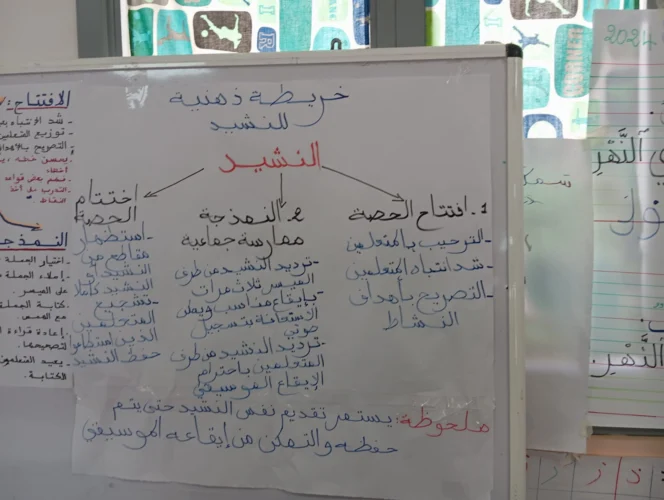 خريطة ذهنية
للنشيد
النشيد
1. افتتاح الحصة
- الترحيب بالمتعلمين
- شد انتباه المتعلمين
- التصريح بأهداف
النشاط
2. النمذجة
ممارسة جماعية
- ترديد النشيد من طرف
الميسر ثلاث مرات
- بإيقاع مناسب ويمكن
الاستعانة بتسجيل
صوتي
- ترديد النشيد من طرف
المتعلمين باحترام
الإيقاع الموسيقي
اختتام
الحصة
- استظهار
مقاطع من
النشيد أو
النشيد كاملا
- تشجيع
المتعلمين
الذين استطاعوا
حفظ النشيد
ملحوظة: يستمر تقديم نفس النشيد حتى يتم
حفظه والتمكن من إيقاعه الموسيقي
الافتتاح:
- شد الانتباه
- توزيع
التصريح
النمذجة
- اختيار الجملة
- إملاء الجملة
على الميسر.
- كتابة الجملة
- إعادة قراءة
لتصحيحها.
- يعيد
الكتابة.
2024
النَّهْرِ
النَّهْرِ.
ز ر ذ